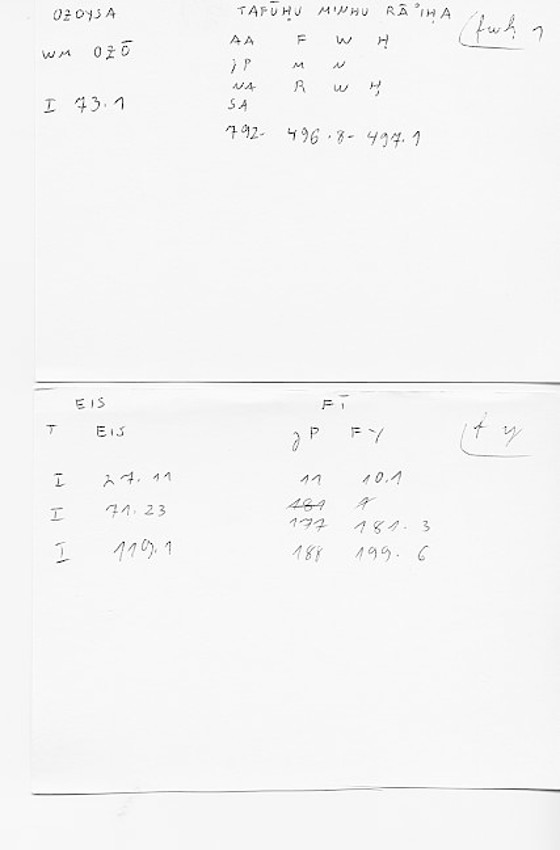 OZOYSA TAFŪḤU MINHU RĀʾIḤA fwḥ 1
AA F W Ḥ
WM OZŌ
jP M N
NA R W Ḥ
I 73.1 SA
792- 496.8- 497.1
EIS FĪ
T EIS jP FY f y
I 27.11 11 10.1
I 71.23 181
177 181.3
I 119.1 188 199.6